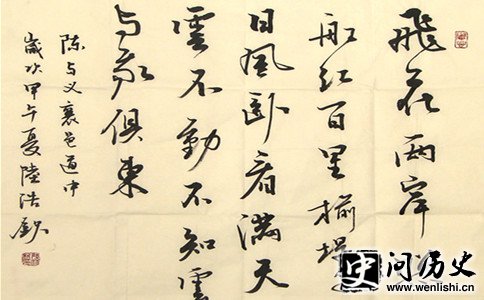 飛花兩岸
船红百里榆堤
日風卧看满天
雲不動不知雲
与我俱東
陈与义襄邑道中
歲次甲午夏陸浩
史 问历史
www.wenlishi.cn